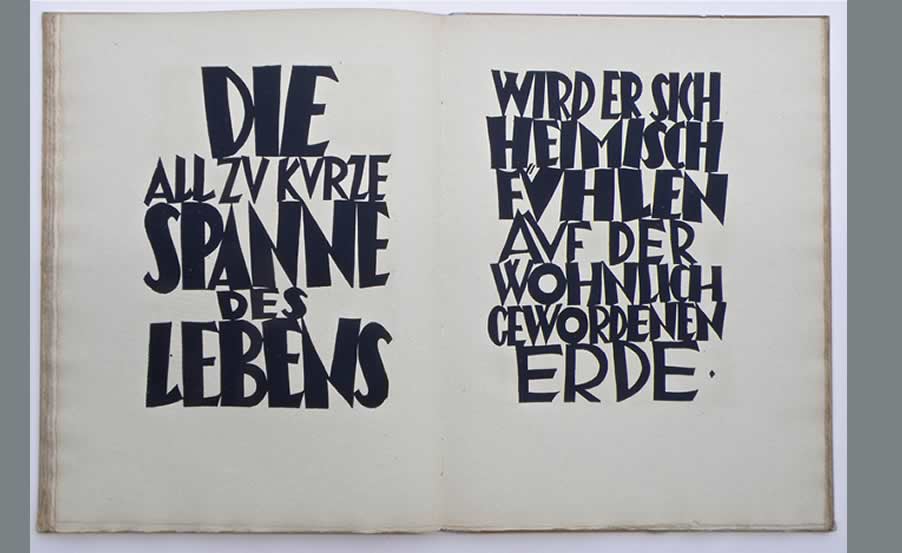 DIE
ALL ZV KVRZE
SPANNE
DES
LEBENS
WIRD ER SICH
HEIMISCH
FÜHLEN
AVF DER
WOHNLICH
GEWORDENEN
ERDE.